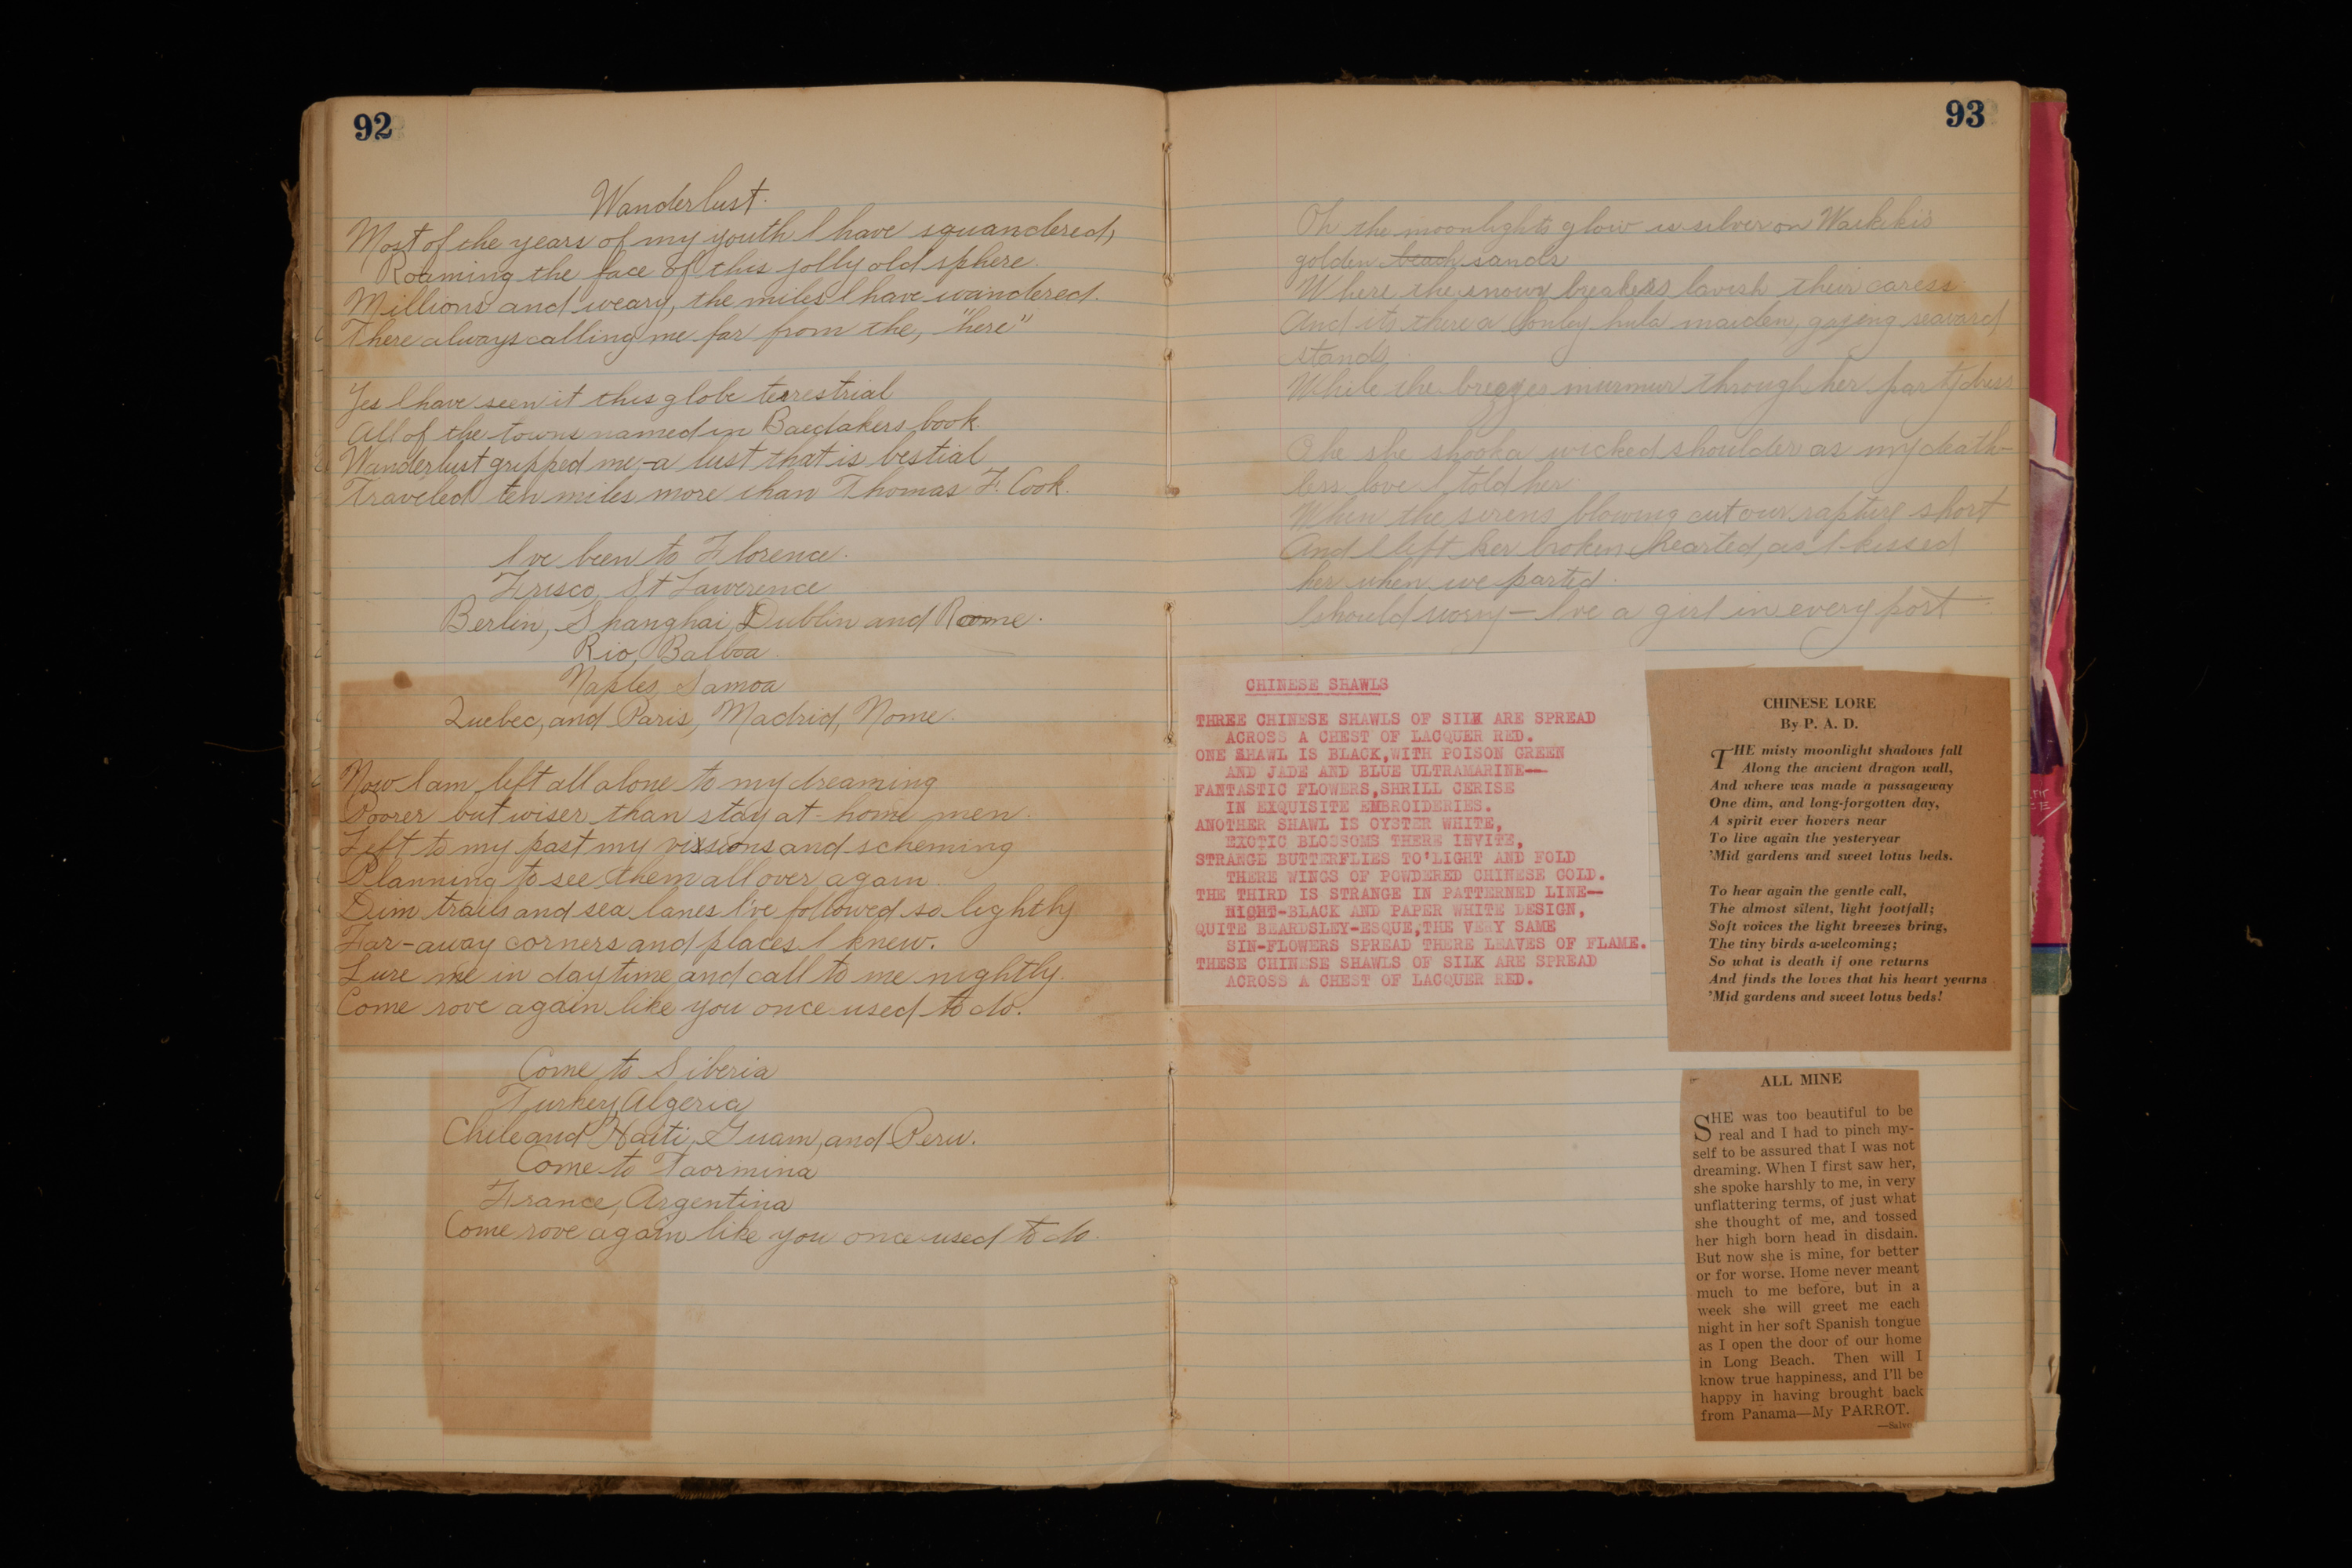 92
Wanderlust.
Most of the years of my youth I have squandered,
Roaming the face of this jolly old sphere.
Millions and weary, the miles I have wandered.
There always calling me far from the, "here"
Yes I have seen it this globe terrestrial
All of the towns named in Baedakers book.
Wanderlust gripped me,-a lust that is bestial
Traveled ten miles more than Thomas F. Cook.
I've been to Florence.
Frisco, St Lawerence
Berlin, Shanghai, Dublin and Rome.
Rio, Balboa
Naples, Samoa
Quebec, and Paris, Madrid, Nome.
Now I am left all alone to my dreaming
Poorer but wiser than stay at-home men.
Left to my past my vissions and scheming
Planning to see them all over again
Dim trails and sea lanes I've followed so lightly
Far-away corners and places I knew.
Lure me in daytime and call to me nightly.
Come rove again like you once used to do.
Come to Siberia
Turkey, Algeria
Chile and Haiti, Guam, and Peru.
Come to Taormina
France, Argentina
Come rove again like you once used to do.
93
Oh the moonlights glow is silver on Waikiki's
golden beach sands
Where the snowy breakers lavish their caress
And its there a lonley hula maiden, gazing seaward
stands
While the breezes murmur through her party dress
O he she shook a wicked shoulder as my death-
less love I told her
When the sirens blowing cut our rapture short
And I left her broken hearted, as I kissed
her when we parted.
I should worry — I've a girl in every port
CHINESE SHAWLS
THREE CHINESE SHAWLS OF SILK ARE SPREAD
ACROSS A CHEST OF LACQUER RED.
ONE SHAWL IS BLACK,WITH POISON GREEN
AND JADE AND BLUE ULTRAMARINE--
FANTASTIC FLOWERS,SHRILL CERISE
IN EXQUISITE EMBROIDERIES.
ANOTHER SHAWL IS OYSTER WHITE,
EXOTIC BLOSSOMS THERE INVITE,
STRANGE BUTTERFLIES TO'LIGHT AND FOLD
THERE WINGS OF POWDERED CHINESE GOLD.
THE THIRD IS STRANGE IN PATTERNED LINE--
NIGHT-BLACK AND PAPER WHITE DESIGN,
QUITE BEARDSLEY-ESQUE,THE VERY SAME
SIN-FLOWERS SPREAD THERE LEAVES OF FLAME.
THESE CHINESE SHAWLS OF SILK ARE SPREAD
ACROSS A CHEST OF LACQUER RED.
CHINESE LORE
By P. A. D.
THE misty moonlight shadows fall
Along the ancient dragon wall,
And where was made a passageway
One dim, and long-forgotten day,
A spirit ever hovers near
To live again the yesteryear
'Mid gardens and sweet lotus beds.
To hear again the gentle call,
The almost silent, light footfall;
Soft voices the light breezes bring,
The tiny birds a-welcoming;
So what is death if one returns
And finds the loves that his heart yearns
'Mid gardens and sweet lotus beds!
ALL MINE
SHE was too beautiful to be
real and I had to pinch my-
self to be assured that I was not
dreaming. When I first saw her,
she spoke harshly to me, in very
unflattering terms, of just what
she thought of me, and tossed
her high born head in disdain.
But now she is mine, for better
or for worse. Home never meant
much to me before, but in a
week she will greet me each
night in her soft Spanish tongue
as I open the door of our home
in Long Beach. Then will I
know true happiness, and I'll be
happy in having brought back
from Panama—My PARROT.
—Salvo